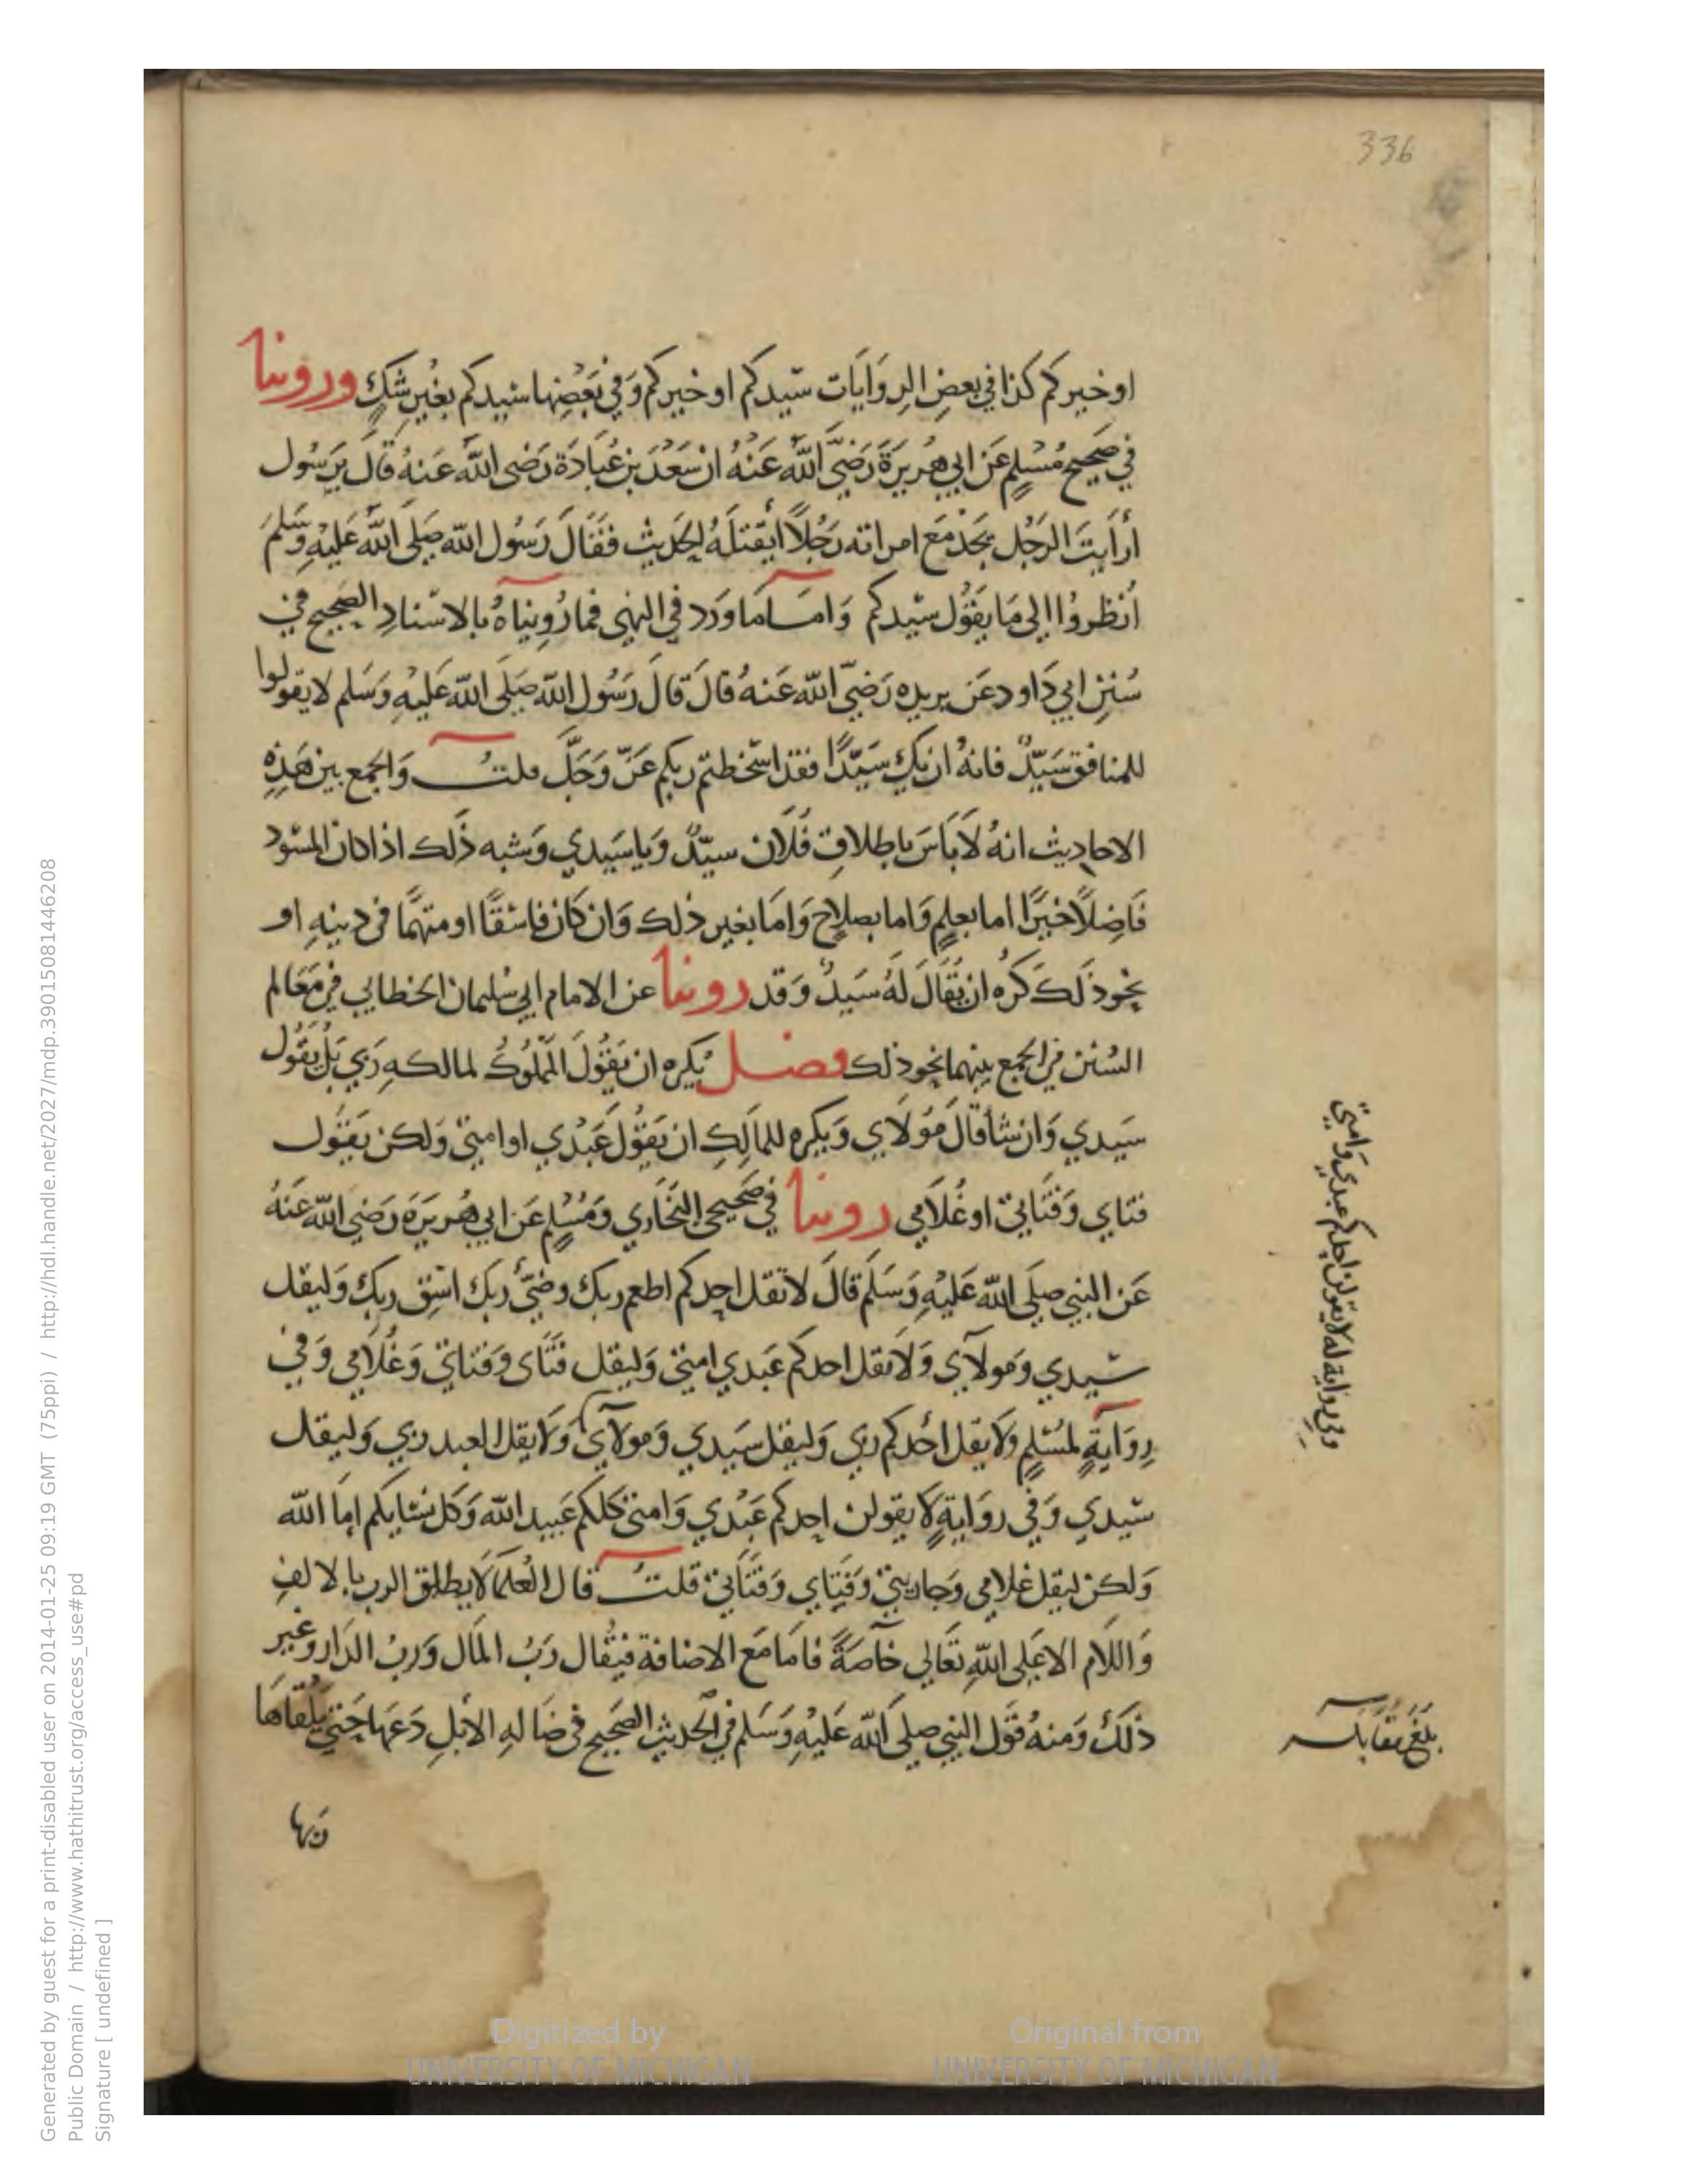 336
او خيركم كذا في بعضِ الرِوَايَات سَيدكم او خيركم وَفي بَعْضِها سَيدكم بغَيرِ شَكٍ وروينا
في صَحيح مُسْلِم عَن ابي هُريرَةَ رَضيَّ اللهُ عَنْهُ ان سَعْدَ بن عُبَادَة رَضى اللهُ عَنهُ قالَ يَرَسُول
أرأيتَ الرَجُل يَجَد مَعَ امراته رَجُلاً أيَقتلَهُ الحَديث فقَالَ رَسُول الله صَلى اللهُ عَليْهِ وَسَلمَ
اُنظروُا الي مَا يَقَوُل سَيّدكم وَامَا مَا وَرَد في النهى فمَا رُوِيناهُ بالاسْنادِ الصَحيح في
سُننِ ابي دَاود عَن بريده رَضيّ اللهُ عَنهُ قالَ قالَ رَسُول الله صَلى الله عَليْهِ وَسَلم لا يقولوا
للمنافق سَيّدٌ فانهُ ان يَكُ سَيّدًا فقد اسْخطتم ربكم عَزّ وَجَلّ قلتُ وَالجمع بين هَذِهِ
الاحاديث انهُ لاَ بَاسَ باطلاقِ فُلَان سيّدٌ وَيا سَيدي وَشبه ذَلك اذا كان المسَود
فَاضِلًا خيَرًا اما بعلمٍ وَاما بصلاحٍ وَامَا بغير ذلك وَان كان فاسْقًا او متهمًا في دينهِ او
نحو ذَلكَ كَرُه ان يُقَالَ لَهُ سَيدٌ وَقد روينا عن الامام ابي سُليمان الخطابي في مَعَالم
السُنن في الجمع بينهما نحو ذلك فصل يُكره ان يَقُولَ المَمْلُوكُ لمالكهِ رَبي بَلْ يَقُول
سَيَدي وَان شأ قالَ مَوُلَاي وَيكره للمَالِكِ ان يَقُول عَبْدي او امتي وَلكن يَقوُل
فتاي وَفَتَاتي او غُلَامي روينا في صَحيحي البُخَاري وَمُسْلِم عَن ابي هُريَرَه رَضى الله عَنهُ
عَن النبي صلى الله عَليْهِ وَسَلمَ قالَ لا يقل احدكم اطعم ربك وضيّءْ ربَك اسْقِ ربك وَليقل
سَيدي وَمولآي وَلا يقل احدكم عَبدي امتي وَليقل فتَاى وَفتاتي وَغُلَامي وَفي
رِوَآيةٍ لمسْلمٍ وَلا يقل احُدكم ربي وَليقل سَيَدي وَمولآي وَلا يقل العبد ربي وَليقل
سَيدي وَفي روَايةٍ لا يقولن احدكم عَبْدي وَامتي كلكم عَبيد الله وَكل نسَايكم إمَا الله
وَلكن ليقل غلامي وَجاريتي وَفتاي وَفتَاتي قلتُ قال العُلَمَا لَا يطلق الرب بالالفِ
وَاللَام الا عَلى اللهِ تَعَالي خاصَةً فامَا مَع الاضافة فيُقَال رَبُ المَال وَربُ الدَار وغير
ذلكَ وَمنهُ قوَل النبي صلى اللهُ عَليْهِ وَسَلم في الحَديث الصَحيح في ضَالهِ الابْلِ دَعَها حَتي يَلْقاهَا
رَبها
وَفي روَاية له لا يقولن احدكم عبدي وَامتي
بَلَغَ مقابلة
Generated by guest for a print-disabled user on 2014-01-25 09:19 GMT (75ppi) / http://hdl.handle.net/2027/mdp.39015081446208
Public Domain / http://www.hathitrust.org/access_use#pd
Signature [ undefined ]
Digitized by
UNIVERSITY OF MICHIGAN
Original from
UNIVERSITY OF MICHIGAN